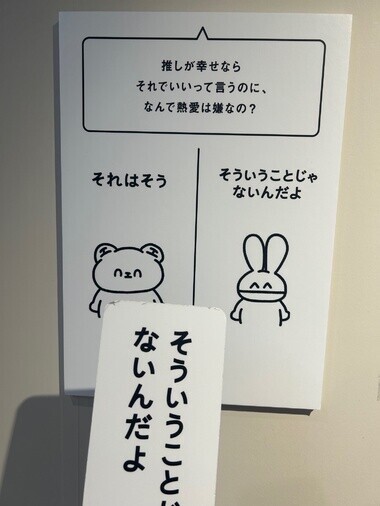 推しが幸せなら
それでいいって言うのに、
なんで熱愛は嫌なの？
それはそう
そういうことじゃ
ないんだよ
そういうことじ
ないんだよ